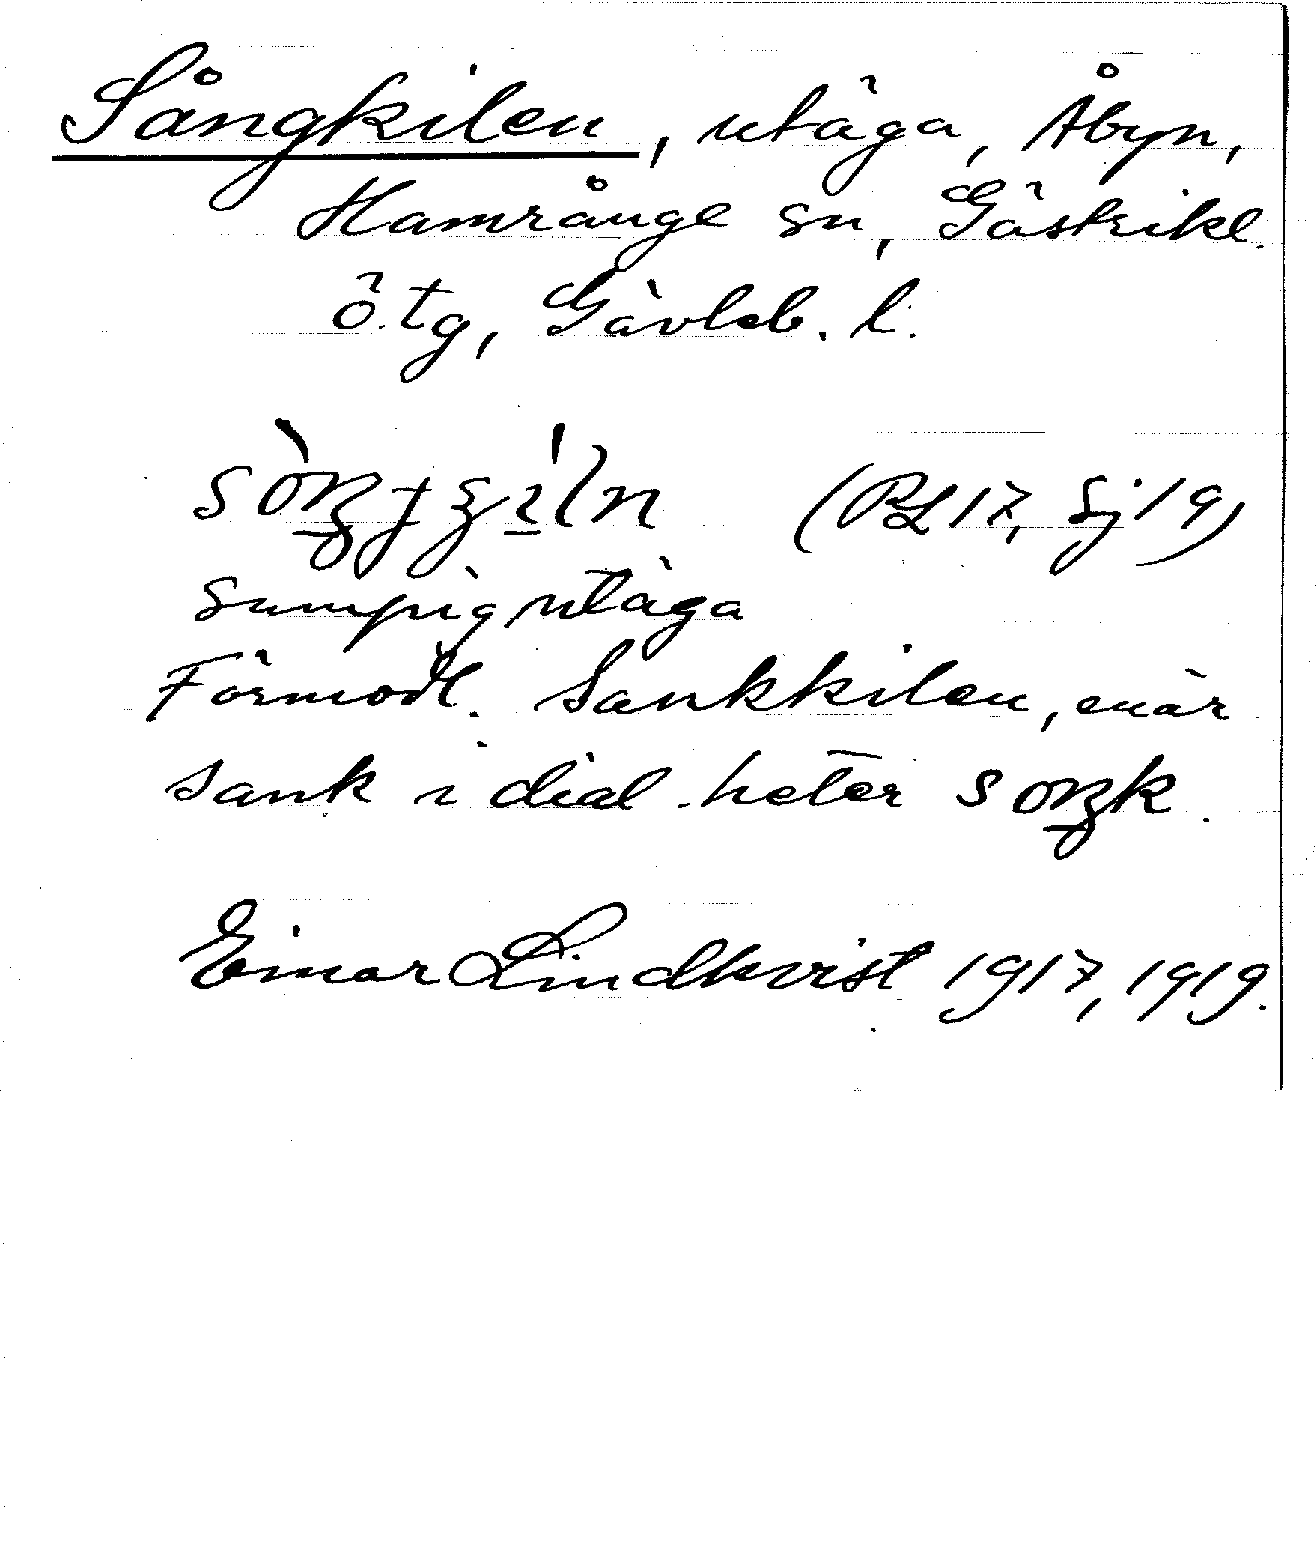 Sångkilen, utäga, Åbyn,
Hamrånge sn, Gästrikl.
ö. tg, Gävleb. l.
(RL 17, Sj 19)
sumpig utäga
Förmodl. Sankkilen, enär
sank i dial. heter soŋk.
Einar Lindkvist 1917, 1919.